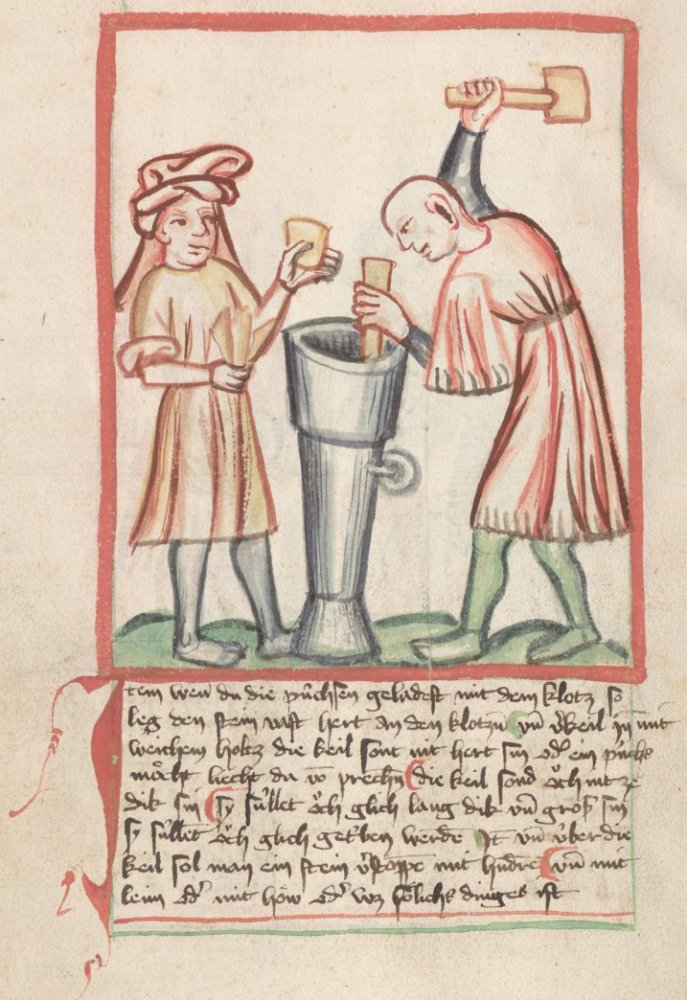 tein wen du die püchsen geladest mit dem klotz so
leg den stein vast hert an den klotzn vn̄ v̓keil jn mit
weichem holtz die keil sont nit hert sin od̓ ein püchs
möcht liecht da vō prechn̄ die keil sond öch nit ze
dik sin sy süllet öch glich lang dik vn̄ groß sin
sy süllet öch glich getben werde Jt vn̄ über die
keil sol man ein stein v̓stoppē mit hudrē vn̄ mit
leim od̓ mit höw od̓ wz sölichs dinges ist